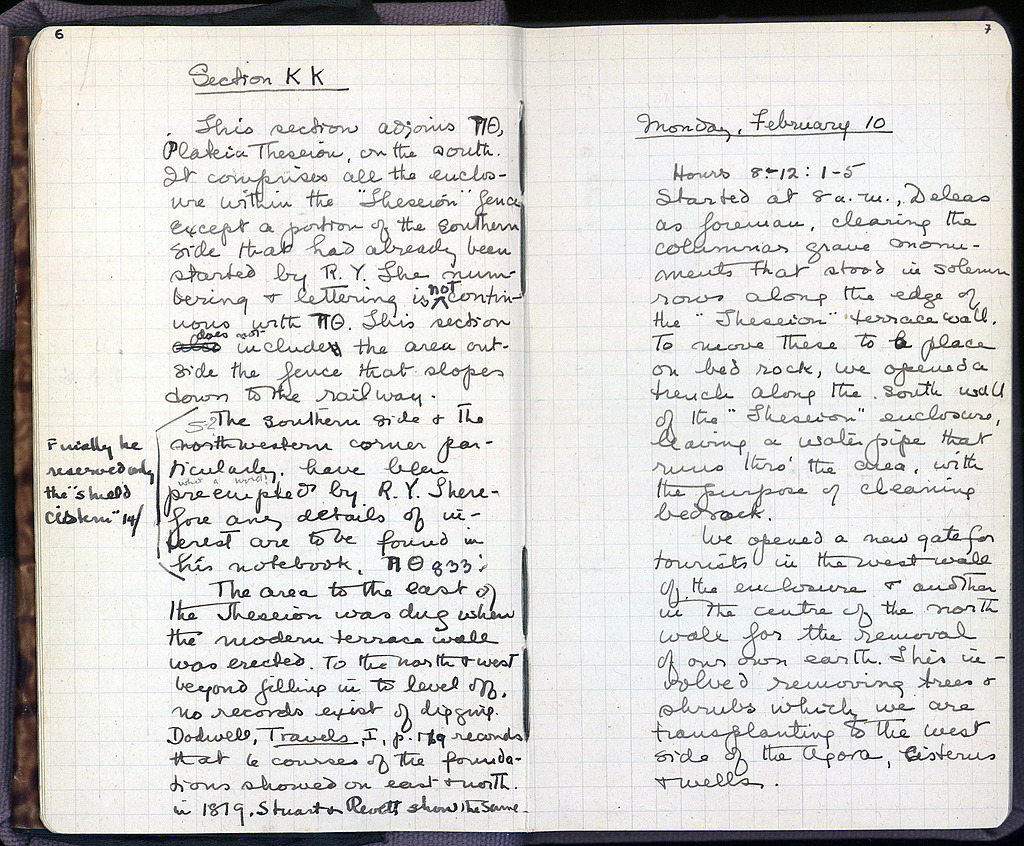 6
Section KK
This section adjoins ΠΘ,
Plateia Theseion, on the south.
It comprises all the enclos-
ure within the "Theseion" fence
except a portion of the southern
side that had already been
started by R.Y. The num-
bering + lettering is not contin-
uous with ΠΘ. This section
does not include the area out-
side the fence that slopes
down to the railway.
The southern side + the
northwestern corner par-
ticularly, have been
what a word!
preempted by R.Y. There-
fore any details of in-
terest are to be found in
his notebook, ΠΘ 833:
Finally he
reserved only
the "shield
cistern" 14/
The area to the east of
the Theseion was dug when
the modern terrace wall
was erected. To the north + west
beyond filling in to level off,
no records exist of digging.
Dodwell, Travels, I, p. records
that 6 courses of the founda-
tions showed on east + north.
in 1819. Stuart + Revett show the same.
7
Monday, February 10
Hours 8-12: 1-5
Started at 8 a.m., Deleas
as foreman, clearing the
columnar grave monu-
ments that stood in solemn
rows along the edge of
the "Theseion" terrace wall.
To move these to place
on bed rock, we opened a
trench along the south wall
of the "Theseion" enclosure,
leaving a water pipe that
runs thro' the area, with
the purpose of cleaning
bedrock.
We opened a new gate for
tourists in the west wall
of the enclosure + another
in the centre of the north
wall for the removal
of our own earth. This in-
volved removing trees +
shrubs which we are
transplanting to the west
side of the Agora, cisterns
+ wells.